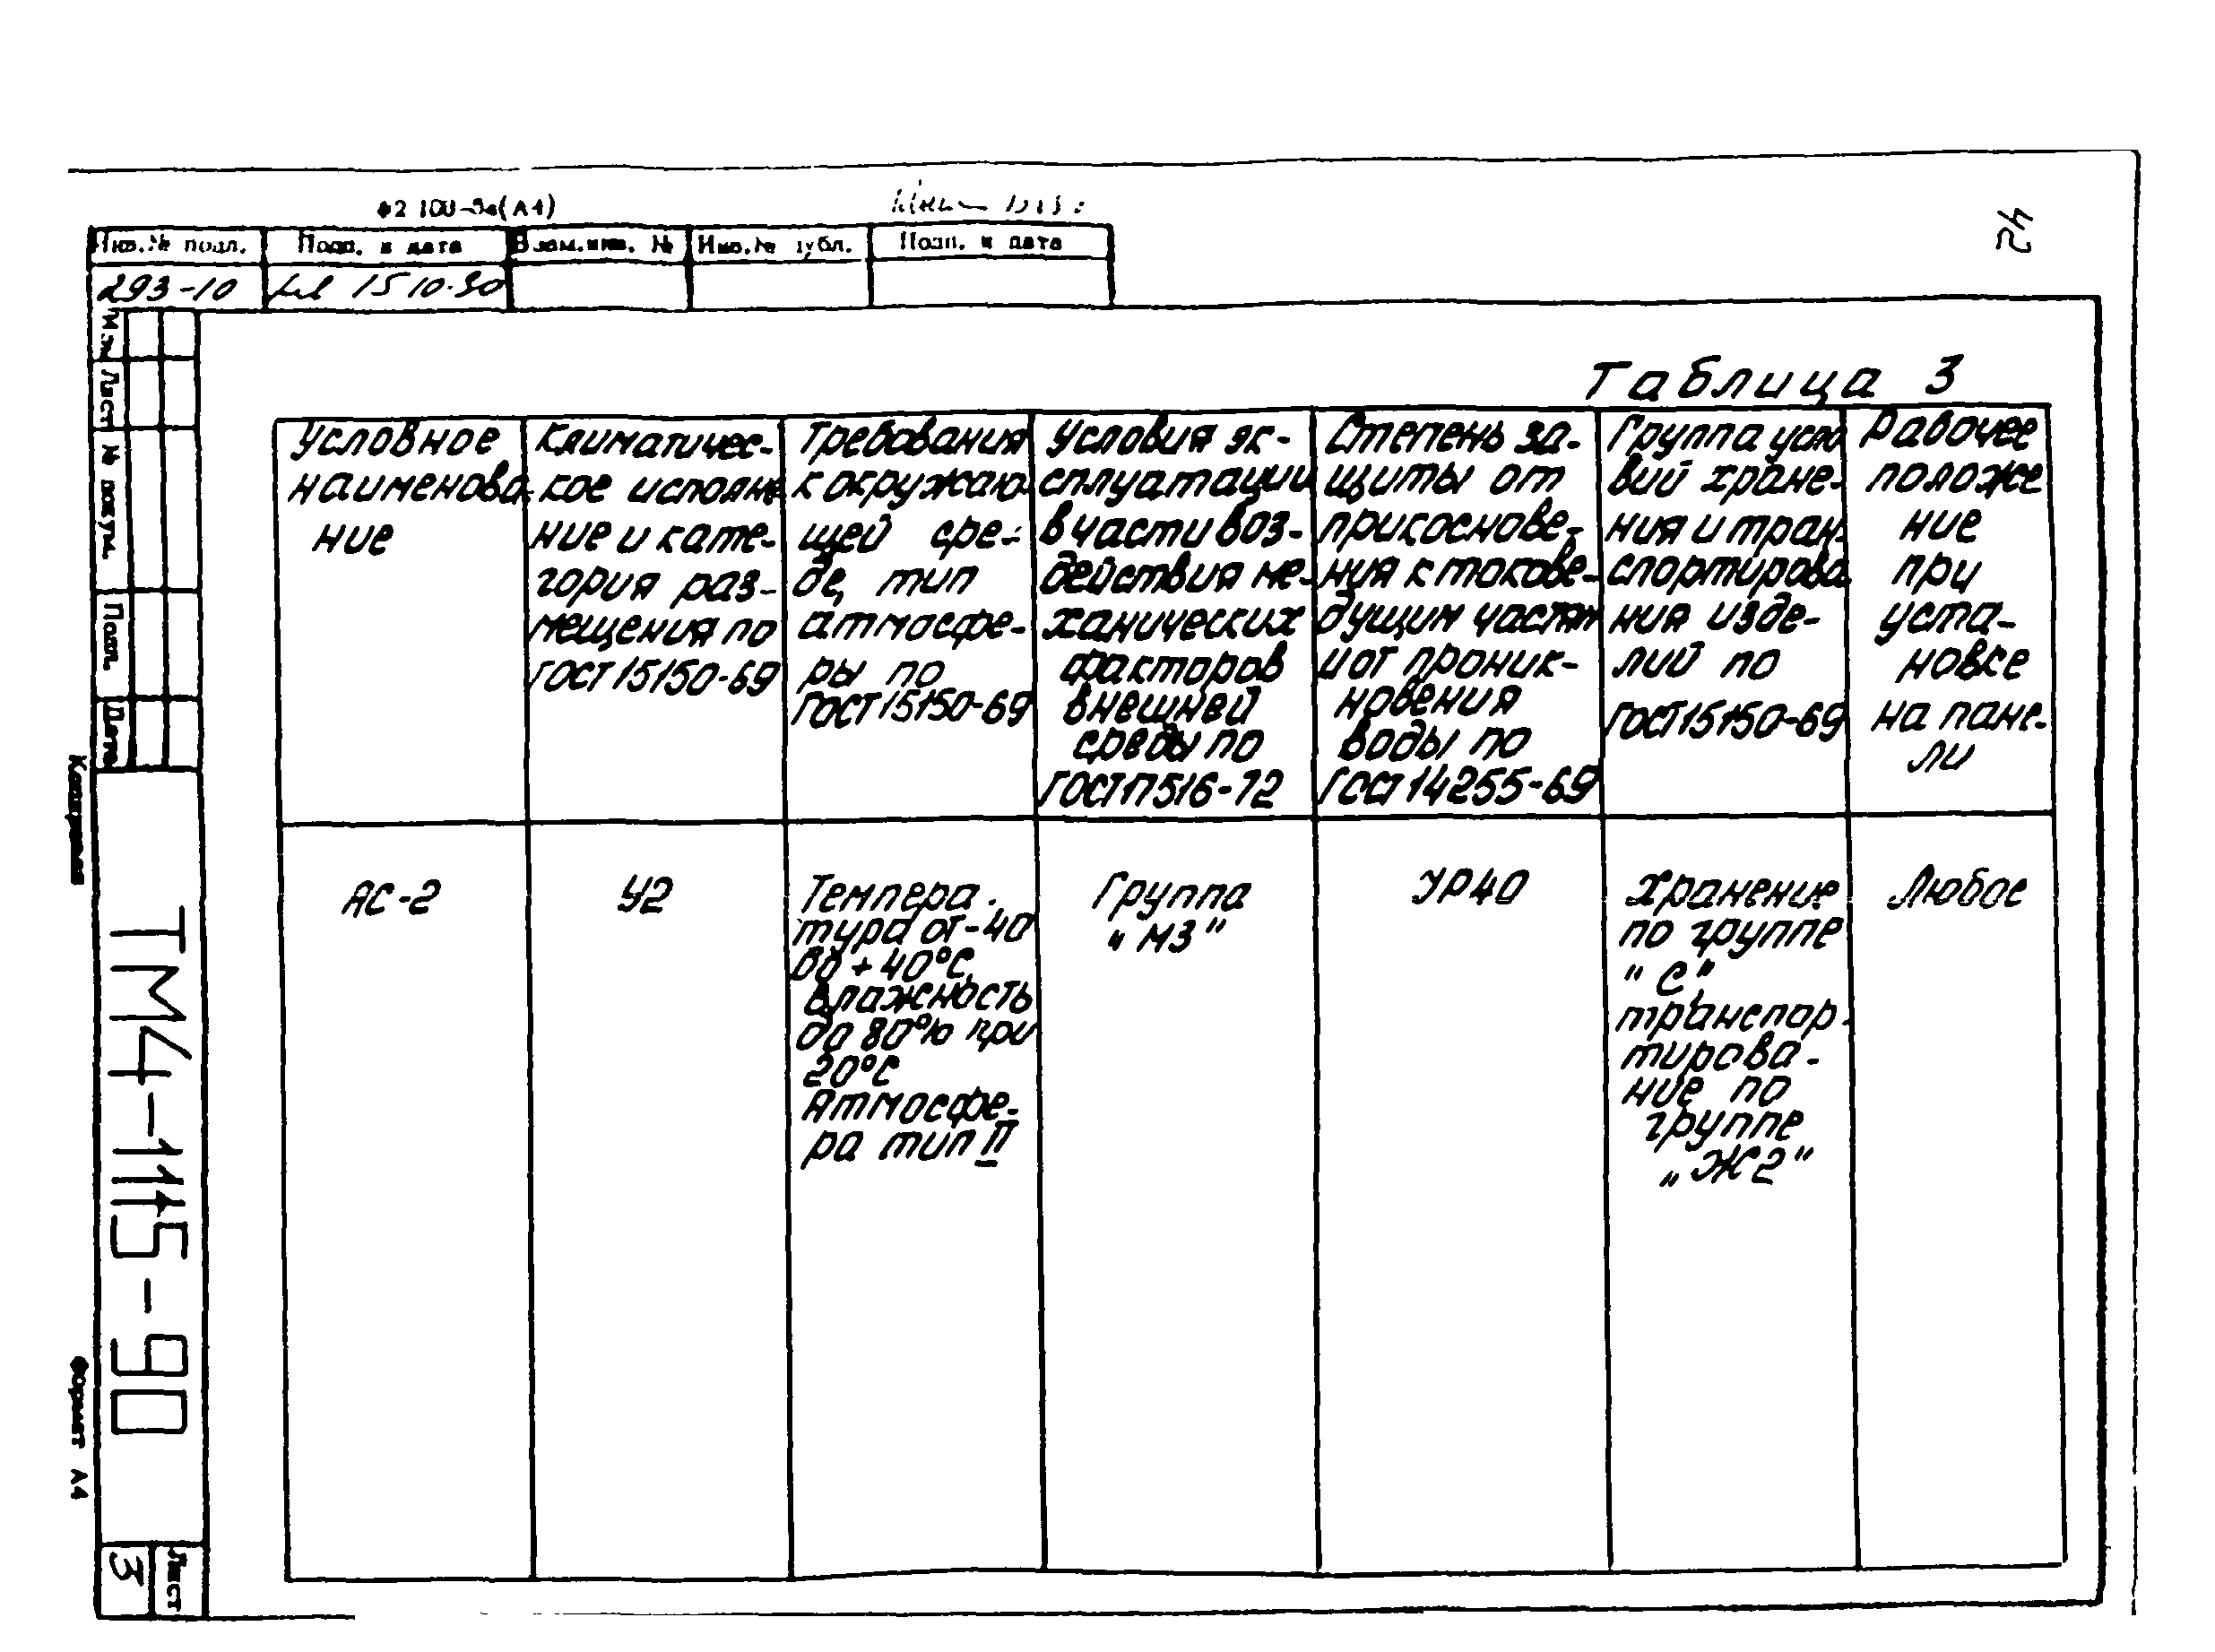 42
Инв.№ подл.
Подп. и дата
Взам.инв. №
Инв.№ дубл.
Подп. и дата
293-10
15 10.90
Таблица 3
Условное
наименова-
ние
Климатичес-
кое исполне
ние и кате-
гория раз-
мещения по
ГОСТ 15150-69
Требования
к окружаю-
щей сре-
де, тип
атмосфе-
ры по
ГОСТ 15150-69
Условия эк-
сплуатации
в части воз-
действия ме-
ханических
факторов
внешней
среды по
ГОСТ 17516-72
Степень за-
щиты от
прикоснове-
ния к токове-
дущим частям
и от проник-
новения
воды по
ГОСТ 14255-69
Группа усло
вий хране-
ния и тран-
спортирова
ния изде-
лий по
ГОСТ 15150-69
Рабочее
положе
ние
при
уста-
новке
на пане-
ли
АС-2
У2
Темпера-
тура от -40
до +40°С,
Влажность
до 80% при
20°С
Атмосфе-
ра тип II
Группа
„М3"
УР40
Хранение
по группе
"С",
транспор-
тирова-
ние по
группе
„Ж2"
Любое
Изм
Лист
№ докум.
Подп.
Дата
ТМ4-1115-90
Лист
3
Копировал
Формат А4